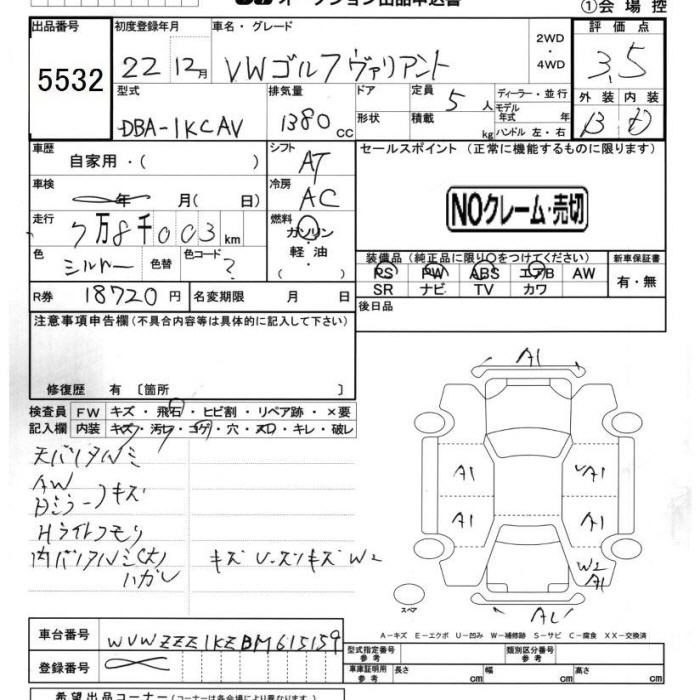 オークション出品申込書
①会場控
出品番号 初度登録年月 車名・グレード 2WD・4WD 評価点
5532 22 12月 VWゴルフヴァリアント 3.5
型式 排気量 ドア 定員 5人 ディーラー・並行 外装 内装
DBA-1KCAV 1380cc 形状 積載 kg モデル年式 年 ハンドル 左・右 B
車歴 自家用・( ) シフト AT セールスポイント (正常に機能するものに限ります)
車検 年 月( 日) 冷房 AC
NOクレーム・売切
走行 7万8千003km 燃料 ガソリン・軽油・( )
色 シルバー 色替 色コード ?
装備品 (純正品に限り○をつけてください) 新車保証書
PS PW ABS エアB AW 有・無
SR ナビ TV カワ
R券 18720円 名変期限 月 日
後日品
注意事項申告欄 (不具合内容等は具体的に記入して下さい)
修復歴 有 〔箇所 〕
検査員記入欄 FW キズ・飛石・ヒビ割・リペア跡・×要
内装 キズ・汚レ・コゲ・穴・スレ・キレ・破レ
天バリタルミ
AW
Dミラー キズ
Hライトクモリ
内バリタルミ(大) キズ U・スリキズ W2
ハガレ
A1
A1 A1
A1 A1
W2
A1
スペア
A－キズ E－エクボ U－凹み W－補修跡 S－サビ C－腐食 XX－交換済
車台番号 WVWZZZ1KZBM615159
登録番号
型式指定番号 参考 類別区分番号 参考
車庫証明用 参考 長さ cm 幅 cm 高さ cm
希望出品コーナー (コーナーは各会場により異なります。)